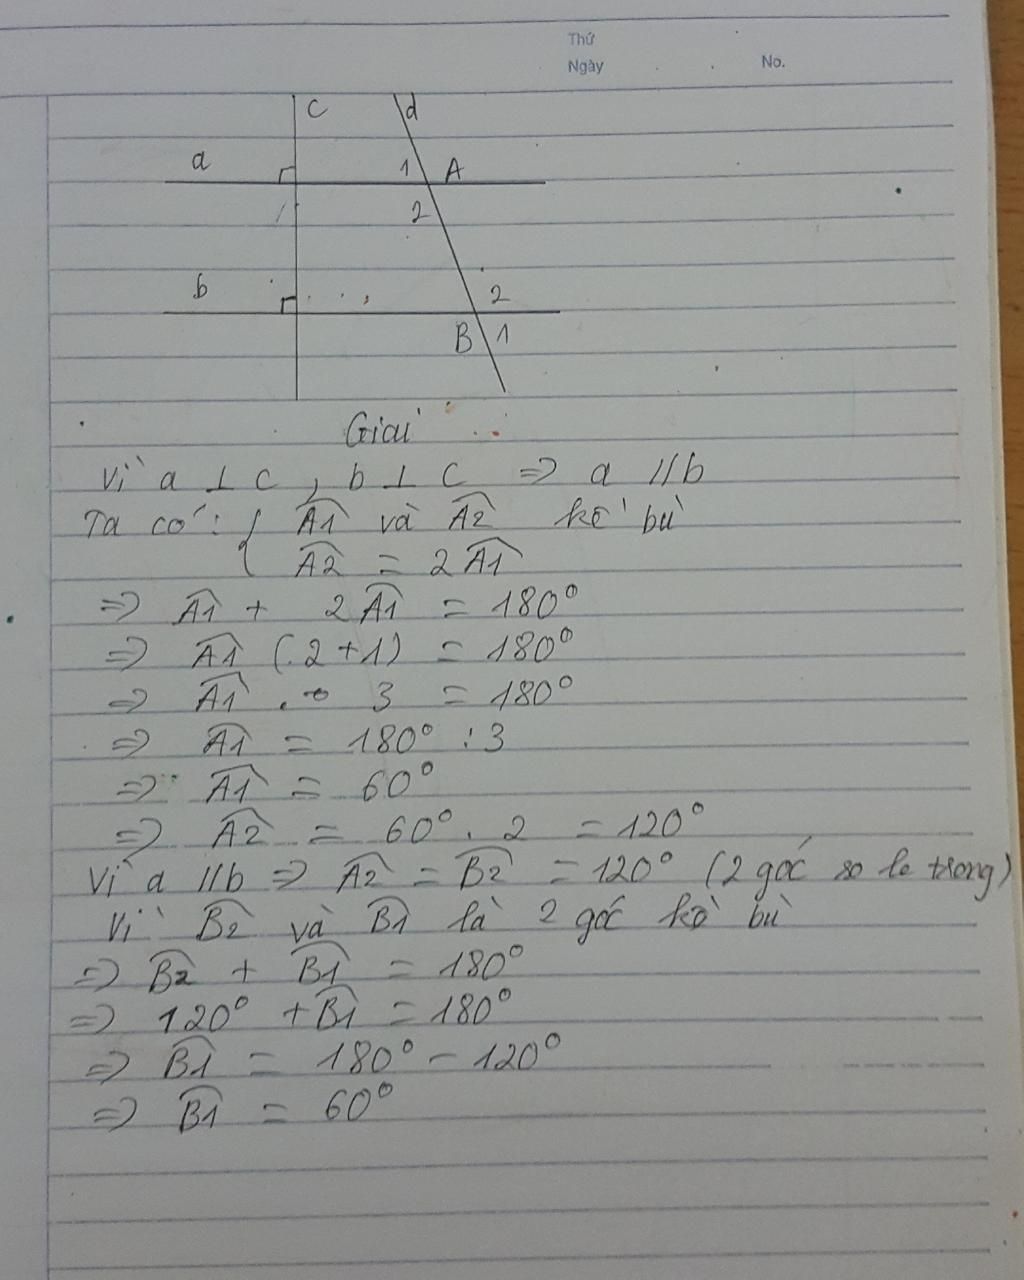 Thứ
Ngày No.
c d
a 1 A
2
b 2
B 1
Giải
Vì a ⊥ c , b ⊥ c => a // b
Ta có : { Â1 và Â2 kề bù
Â2 = 2Â1
=> Â1 + 2Â1 = 180°
=> Â1 (2+1) = 180°
=> Â1 . 3 = 180°
=> Â1 = 180° : 3
=> Â1 = 60°
=> Â2 = 60° . 2 = 120°
Vì a // b => Â2 = B̂2 = 120° (2 góc so le trong)
Vì B̂2 và B̂1 là 2 góc kề bù
=> B̂2 + B̂1 = 180°
=> 120° + B̂1 = 180°
=> B̂1 = 180° - 120°
=> B̂1 = 60°